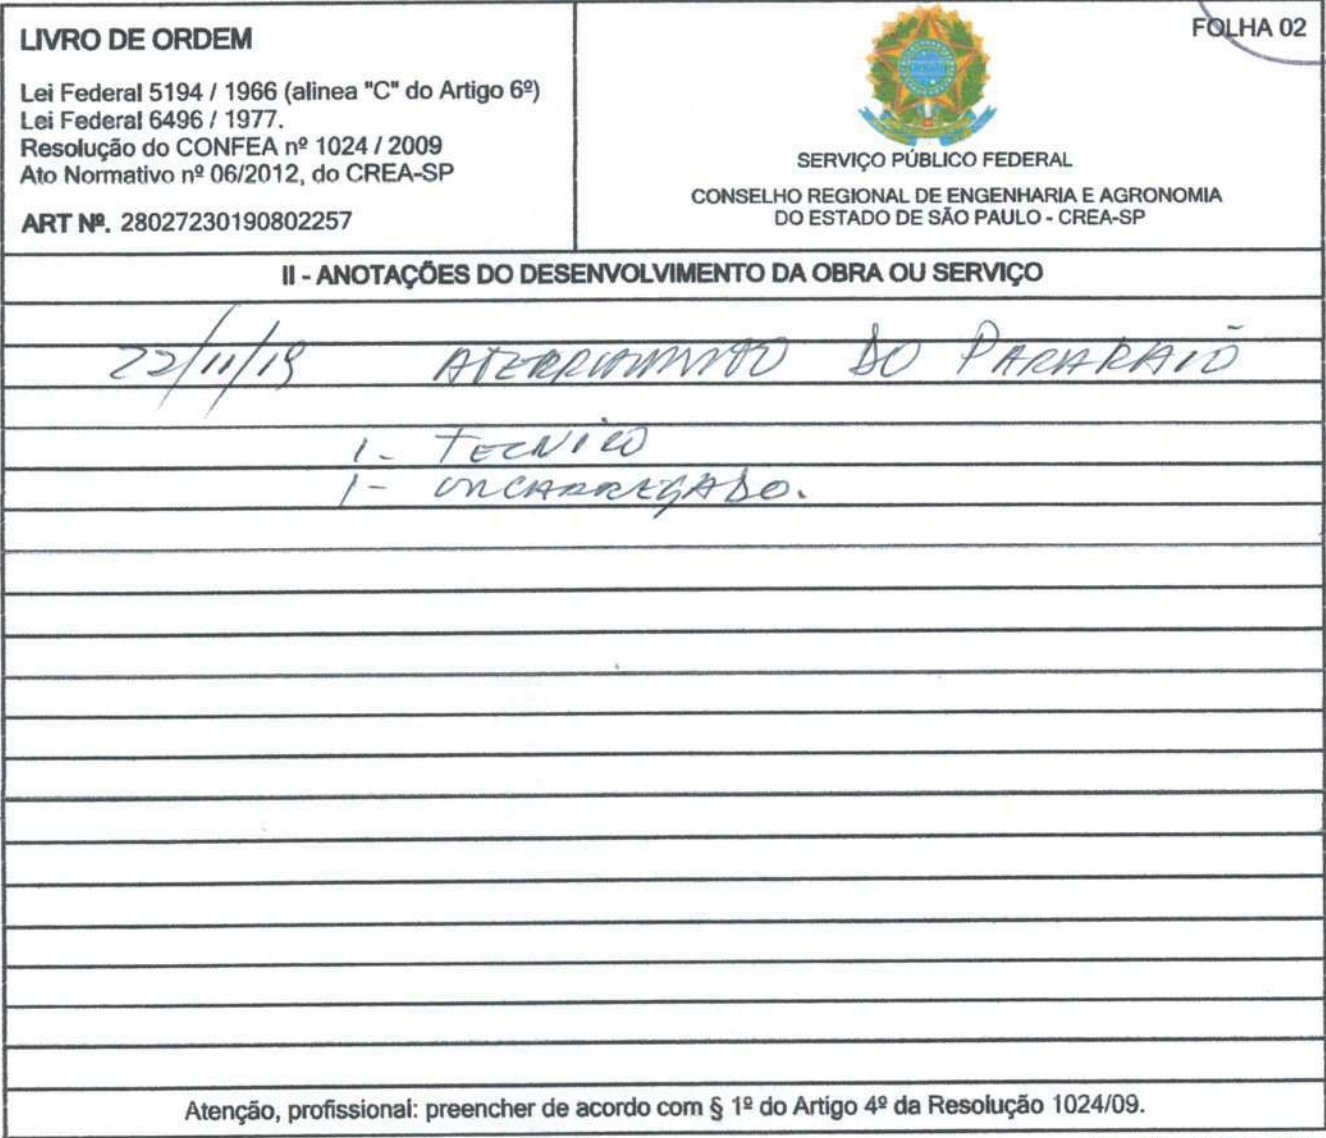 LIVRO DE ORDEM
Lei Federal 5194 / 1966 (alinea "C" do Artigo 6º)
Lei Federal 6496 / 1977.
Resolução do CONFEA nº 1024 / 2009
Ato Normativo nº 06/2012, do CREA-SP
ART Nº. 28027230190802257
FOLHA 02
SERVIÇO PÚBLICO FEDERAL
CONSELHO REGIONAL DE ENGENHARIA E AGRONOMIA
DO ESTADO DE SÃO PAULO - CREA-SP
II - ANOTAÇÕES DO DESENVOLVIMENTO DA OBRA OU SERVIÇO
22/11/19 ATERRAMENTO DO PARARAIO
1- TECNICO
1- ENCARREGADO.
Atenção, profissional: preencher de acordo com § 1º do Artigo 4º da Resolução 1024/09.